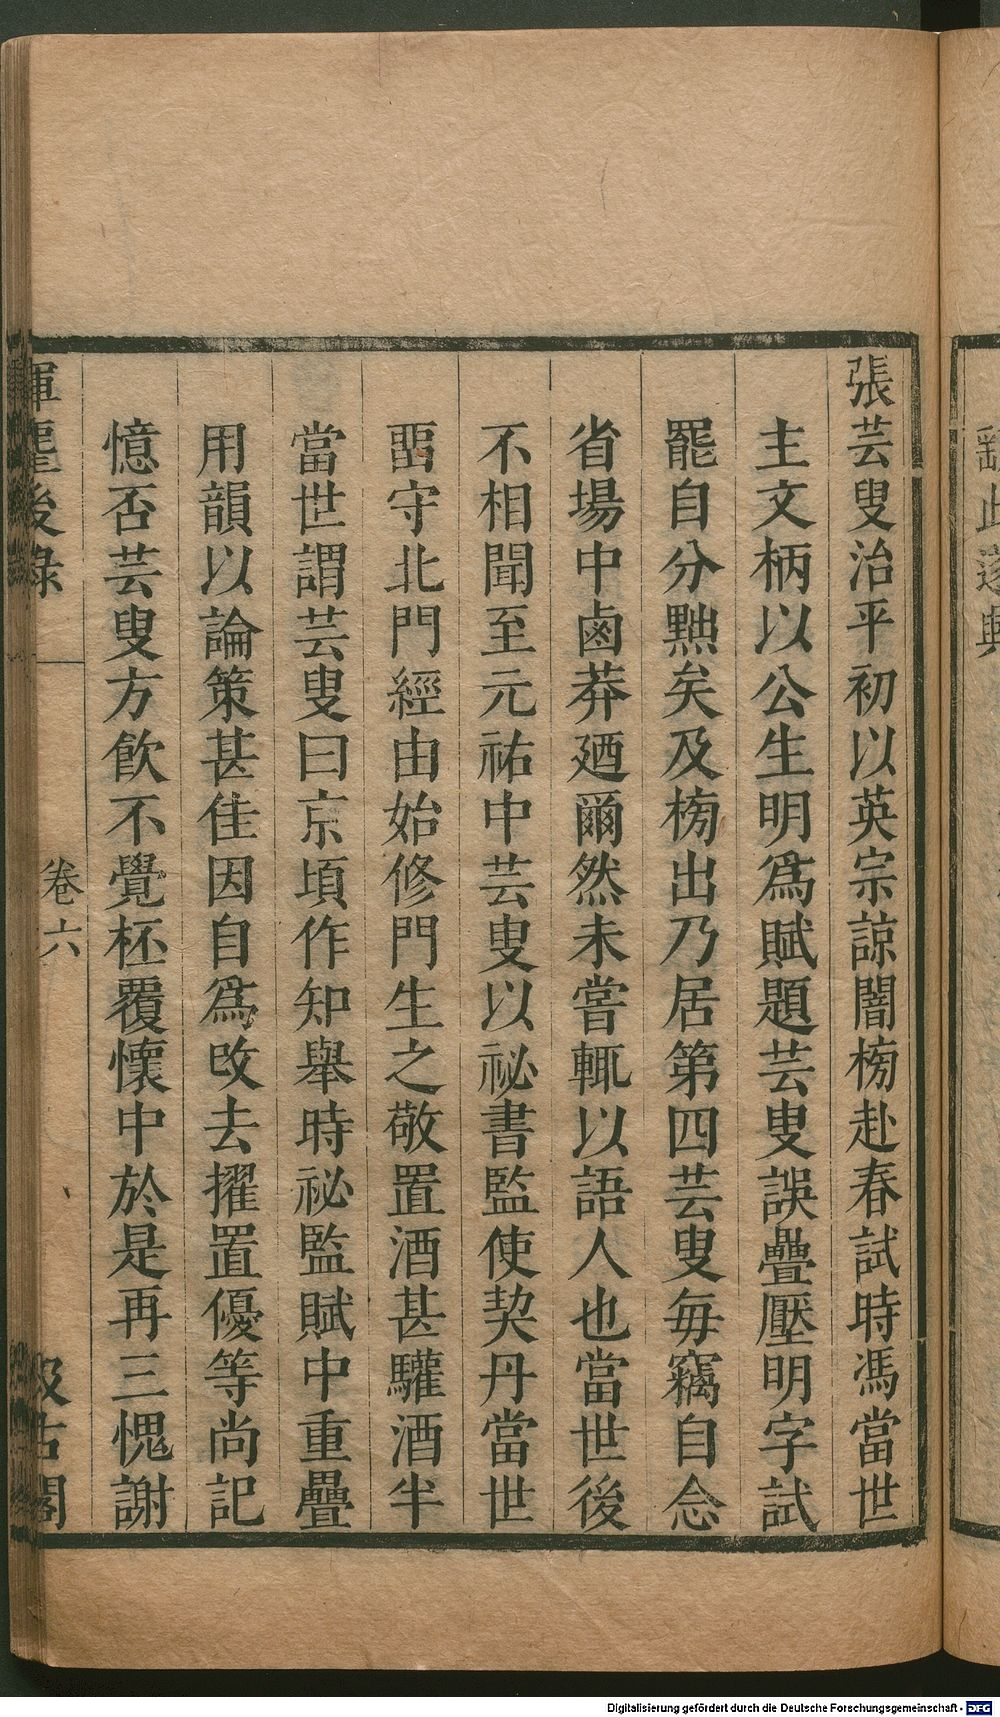 張芸叟治平初以英宗諒闇榜赴春試時馮當世
主文柄以公生明爲賦題芸叟誤疊壓明字試
罷自分黜矣及榜出乃居第四芸叟每竊自念
省場中鹵莽廼爾然未嘗輒以語人也當世後
不相聞至元祐中芸叟以祕書監使契丹當世
畱守北門經由始修門生之敬置酒甚驩酒半
當世謂芸叟曰京頃作知舉時祕監賦中重疊
用韻以論策甚佳因自爲改去擢置優等尚記
憶否芸叟方飲不覺杯覆懷中於是再三愧謝
揮麈後錄
卷六
汲古閣
Digitalisierung gefördert durch die Deutsche Forschungsgemeinschaft - DFG